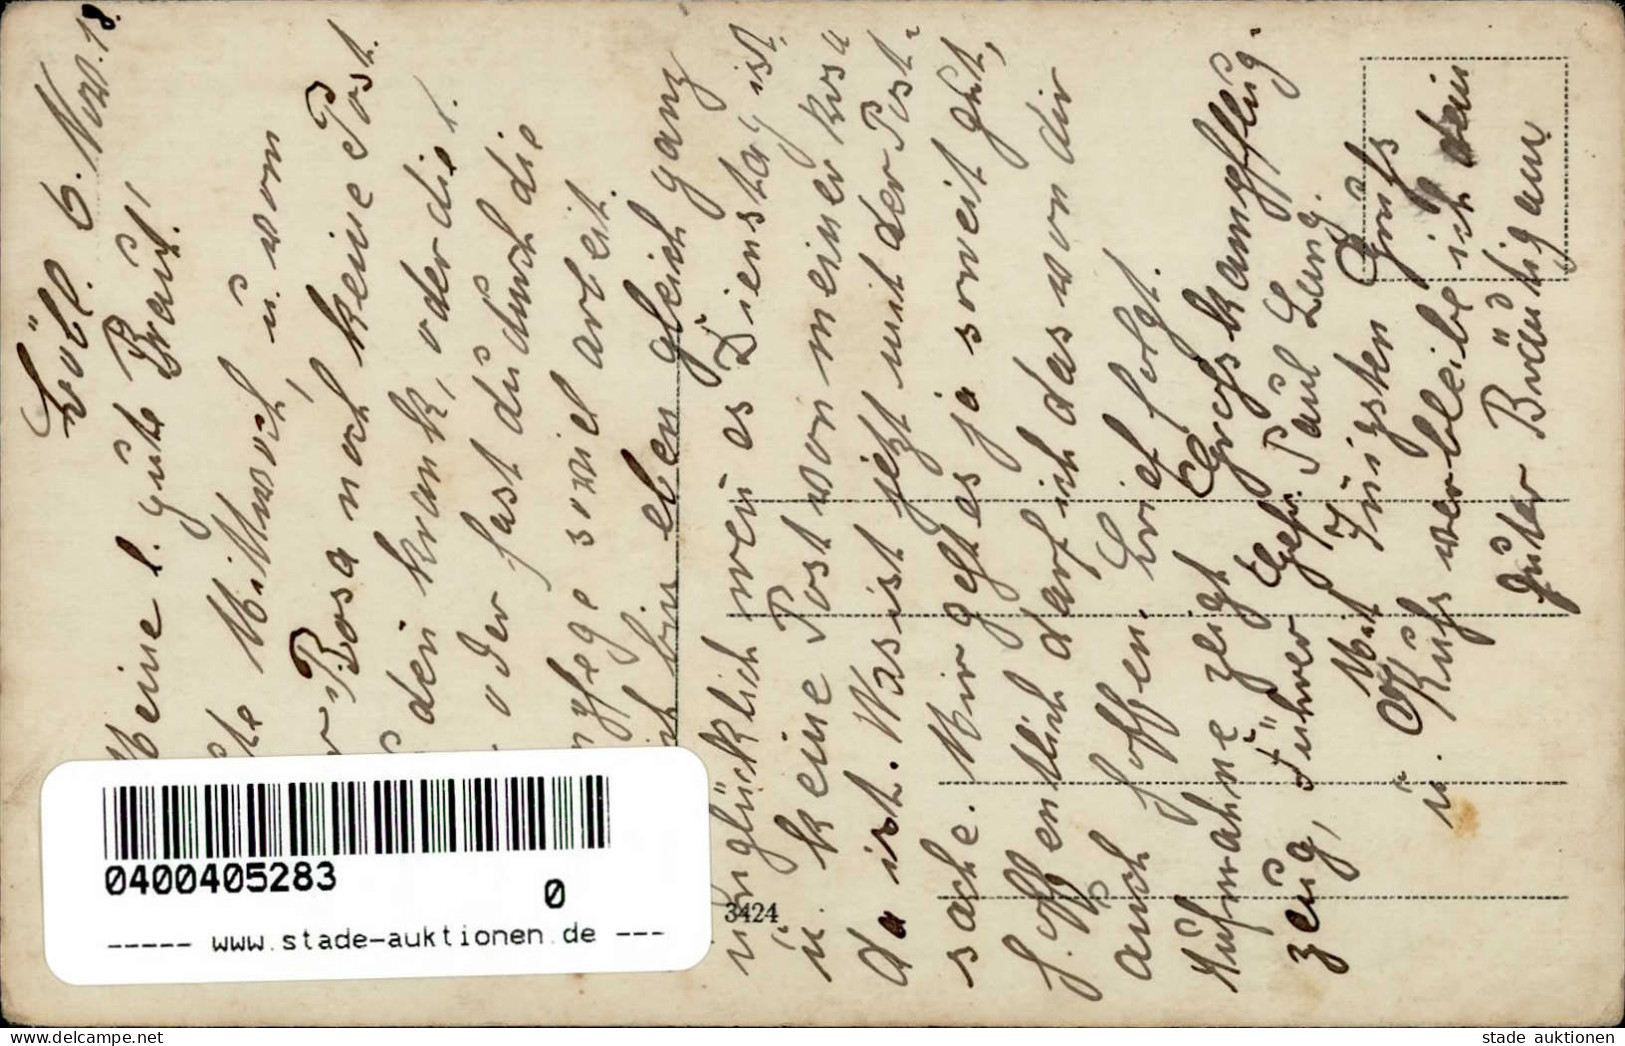 Söll. 6. Nov. 18.
Meine l. gute Braut!
Mittwoch, u. von
Rosa noch keine Post.
dein krank, oder die
oder fast du durch die
soviel arbeit.
ich bin eben gleich ganz
unglücklich wen es Dienstag ist
u. keine Post von meiner Rosa
da ist. Was ist jetzt mit der Post-
sache. Mir geht es ja soweit gut,
hoffentlich darf ich das von dir
auch hoffen. Brief folgt.
Aufnahme zeigt Groskampfflug-
zeug, Führer Gefr. Paul Lang.
Mit Innigsten Gruß
u. Kuß verbleibe ich dein
guter Bräutigam
3424
0400405283
0
----- www.stade-auktionen.de ---
stade auktionen